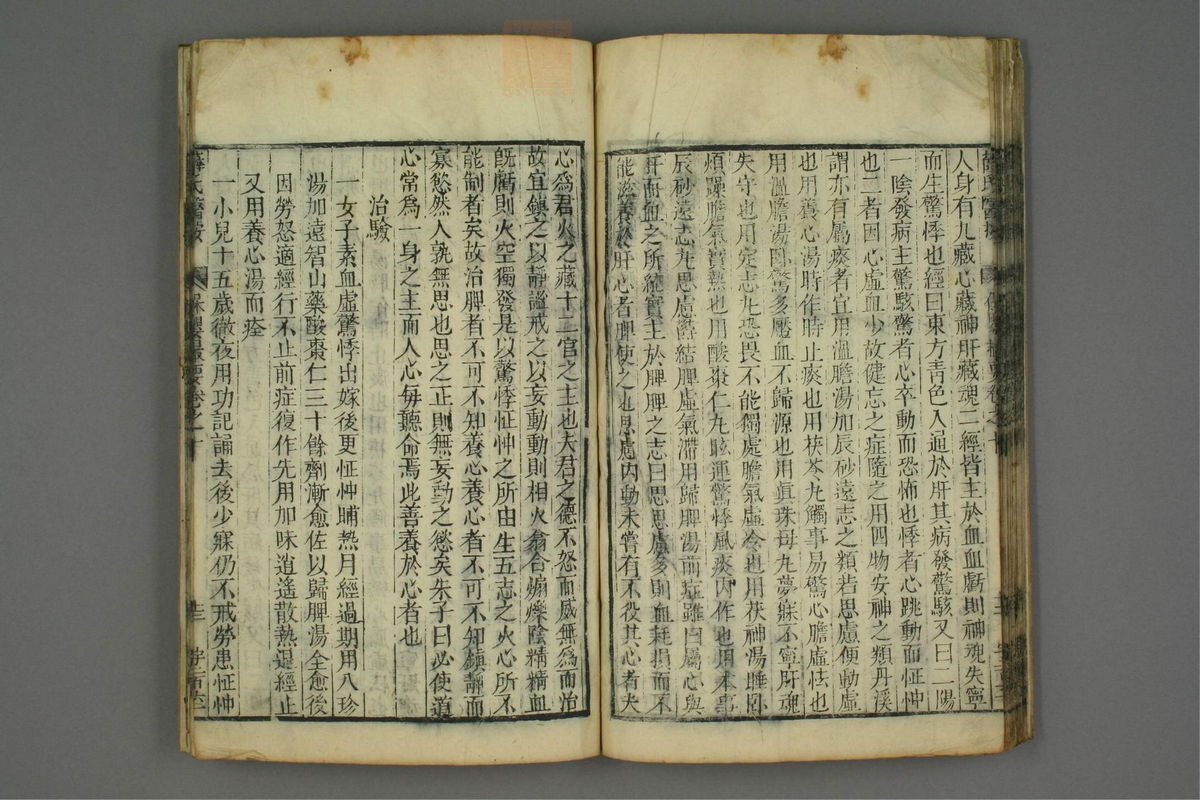 人身有九藏心藏神肝藏魂二經皆主於血血虧則神魂失寧
而生驚悸也經曰東方青色入通於肝其病發驚駭又曰二陽
一陰發病主驚駭驚者心卒動而恐怖也悸者心跳動而怔忡
也二者因心虛血少故健忘之症隨之用四物安神之類丹溪
謂亦有屬痰者宜用溫膽湯加辰砂遠志之類若思慮便動虛
也用養心湯時作時止痰也用茯苓丸觸事易驚心膽虛怯也
用溫膽湯臥驚多魘血不歸源也用眞珠母丸夢寐不寧肝魂
失守也用定志丸恐畏不能獨處膽氣虛冷也用茯神湯睡臥
煩躁膽氣實熱也用酸棗仁丸眩運驚悸風痰內作也用本事
辰砂遠志丸思慮鬱結脾虛氣滯用歸脾湯前症雖曰屬心與
肝而血之所統實主於脾脾之志曰思思慮多則血耗損而不
能滋養於肝心者脾使之也思慮內動未嘗有不役其心者夫
心爲君火之藏十二官之主也夫君之德不怒而威無爲而治
故宜鎮之以靜謐戒之以妄動動則相火翕合煽爍陰精精血
旣虧則火空獨發是以驚悸怔忡之所由生五志之火心所不
能制者矣故治脾者不可不知養心養心者不可不知鎮靜而
寡慾然人孰無思也思之正則無妄動之慾矣朱子曰必使道
心常爲一身之主而人心每聽命焉此善養於心者也
治驗
一女子素血虛驚悸出嫁後更怔忡晡熱月經過期用八珍
湯加遠智山藥酸棗仁三十餘劑漸愈佐以歸脾湯全愈後
因勞怒適經行不止前症復作先用加味逍遙散熱退經止
又用養心湯而痊
一小兒十五歲徹夜用功記誦去後少寐仍不戒勞患怔忡
薛氏醫按 保嬰撮要卷之十